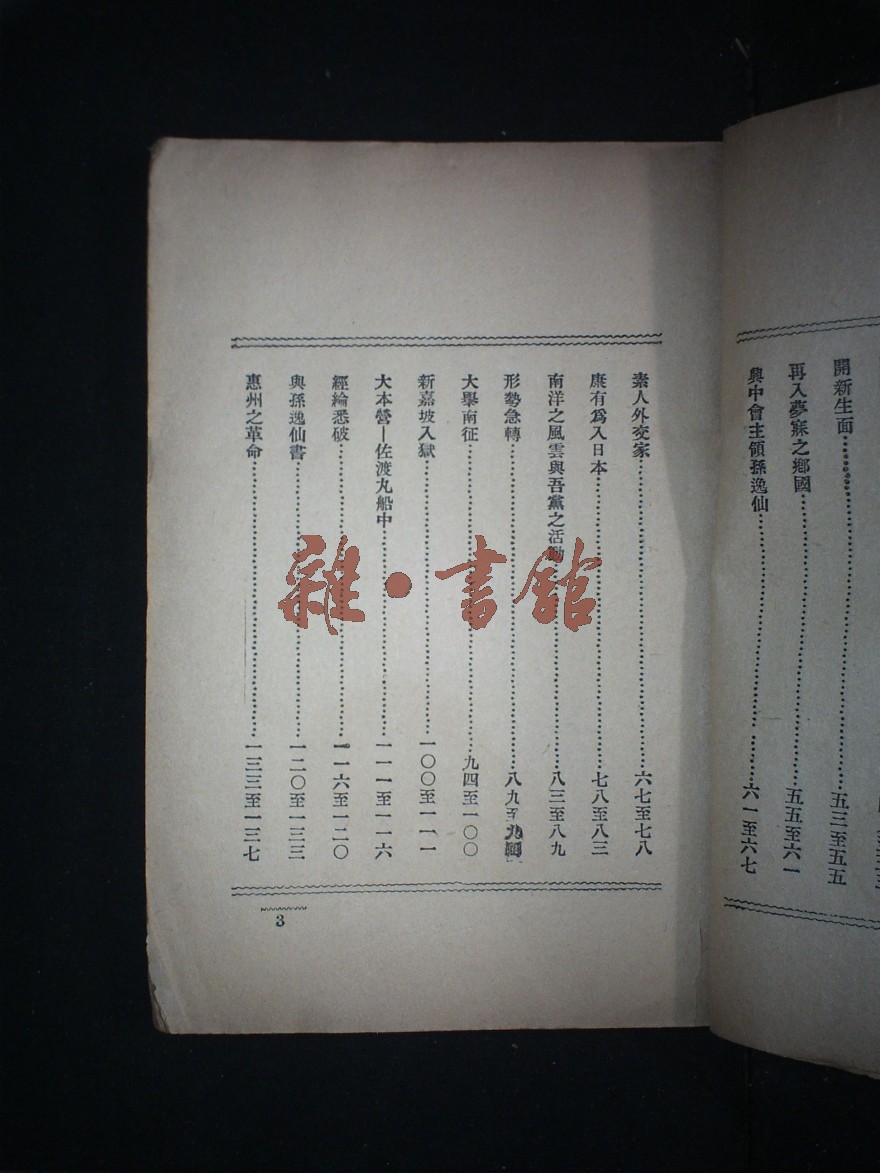 開新生面……五三至五五
再入夢寐之鄉國……五五至六一
興中會主領孫逸仙……六一至六七
素人外交家……六七至七八
康有爲入日本……七八至八三
南洋之風雲與吾黨之活動……八三至八九
形勢急轉……八九至九四
大舉南征……九四至一〇〇
新嘉坡入獄……一〇〇至一一一
大本營—佐渡丸船中……一一一至一一六
經綸悉破……一一六至一二〇
與孫逸仙書……一二〇至一三三
惠州之革命……一三三至一三七
3
雜·書館